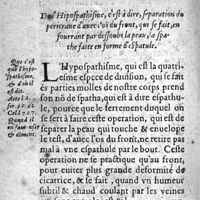 De l'Hipospathisme, c'est à dire, separation du
pericrane d'auec l'os du front, qui se fait, en
fourrant par dessoubs la peau, la spa-
the faite en forme d'espatule.
Que c'est
que Hipo-
spathisme,
& d'où il
est dit.
Celse
Quand il
en faut vser
& ēment.
L'Hypospathisme, qui est la quatri-
esme espece de diuision, qui se fait
és parties molles de nostre corps prend
son nō de spatha, qui est à dire espatu-
le, pource que le ferrement duquel on
se sert à faire ceste operation, qui est de
separer la peau qui touche & enuelope
le test, d'auec l'os du front, ne retire pas
mal à vne espathule par le bout. Ceste
operation ne se practique qu'au front,
pour euiter plus grande deformité de
cicatrice, & se fait, quand vn humeur
subtil & chaud coulant par les veines